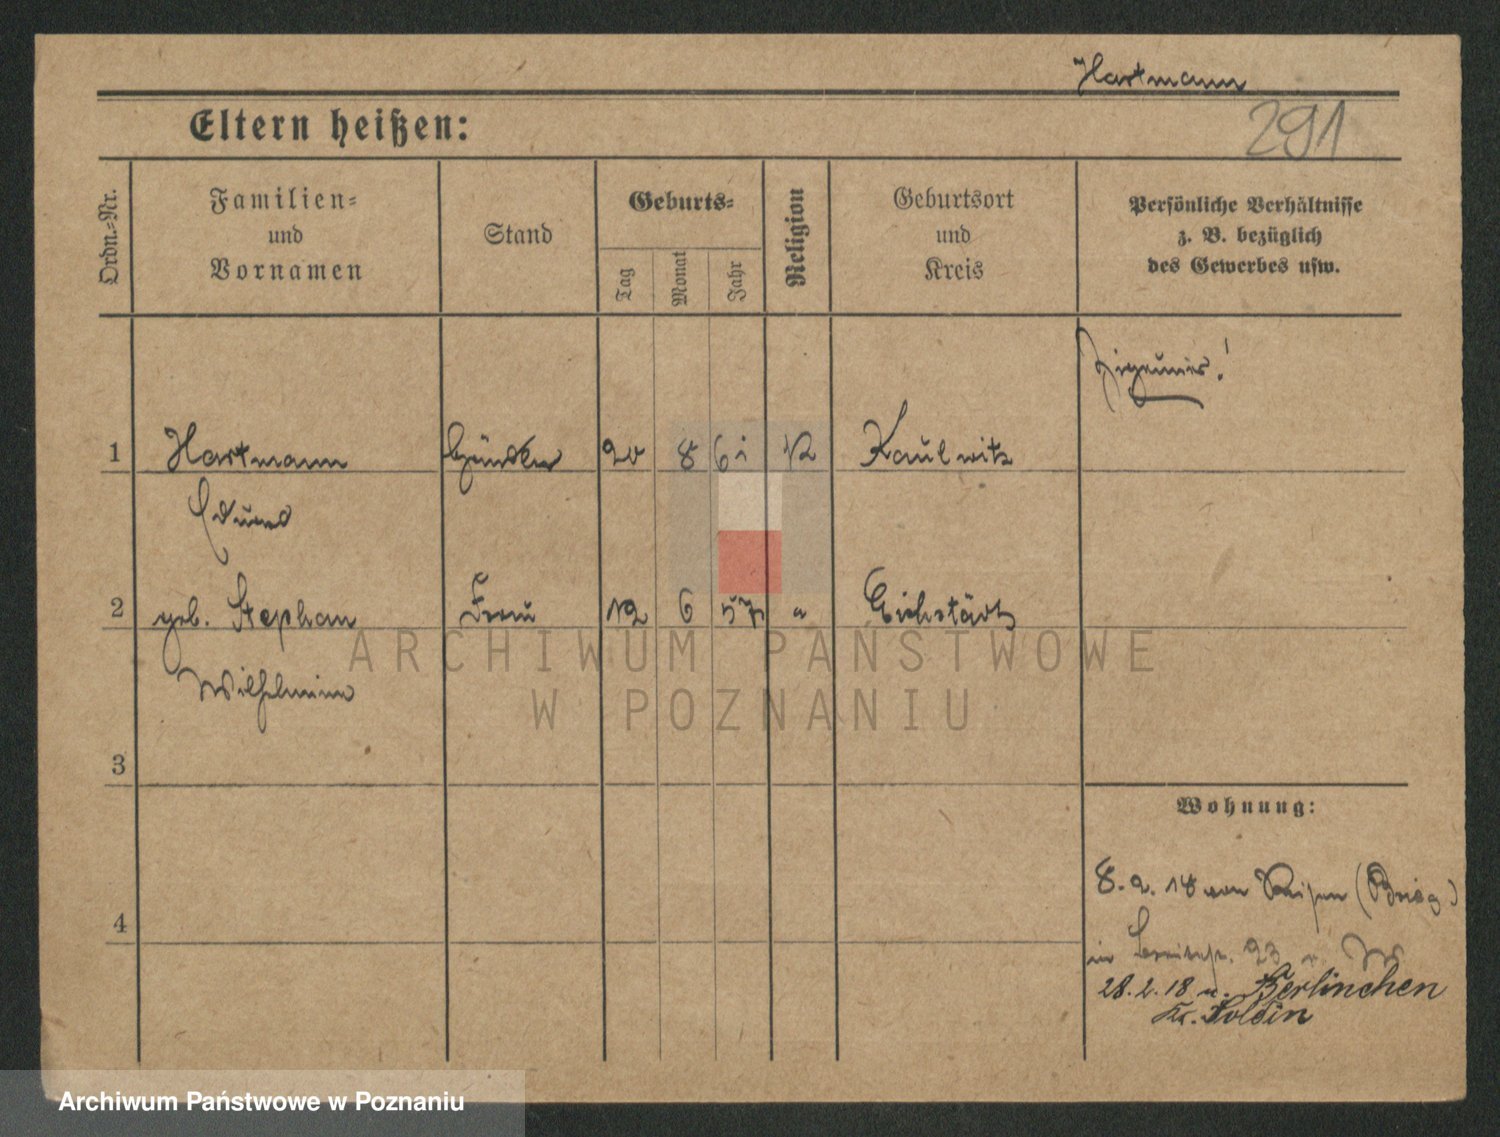 Hartmann
291
Eltern heißen:
Ordn.-Nr.
Familien-
und
Vornamen
Stand
Geburts-
Tag
Monat
Jahr
Religion
Geburtsort
und
Kreis
Persönliche Verhältnisse
z. B. bezüglich
des Gewerbes usw.
Zigeuner!
1 Hartmann Händler 20 8 61 Kaulwitz
2 geb. Stephan Frau 12 6 57 " Eichstädt
Wilhelmine
3
4
Wohnung:
8.2.18 von Reisen (Brieg)
in 23
28.2.18 n. Berlinchen
Kr. Soldin
ARCHIWUM PAŃSTWOWE
W POZNANIU
Archiwum Państwowe w Poznaniu